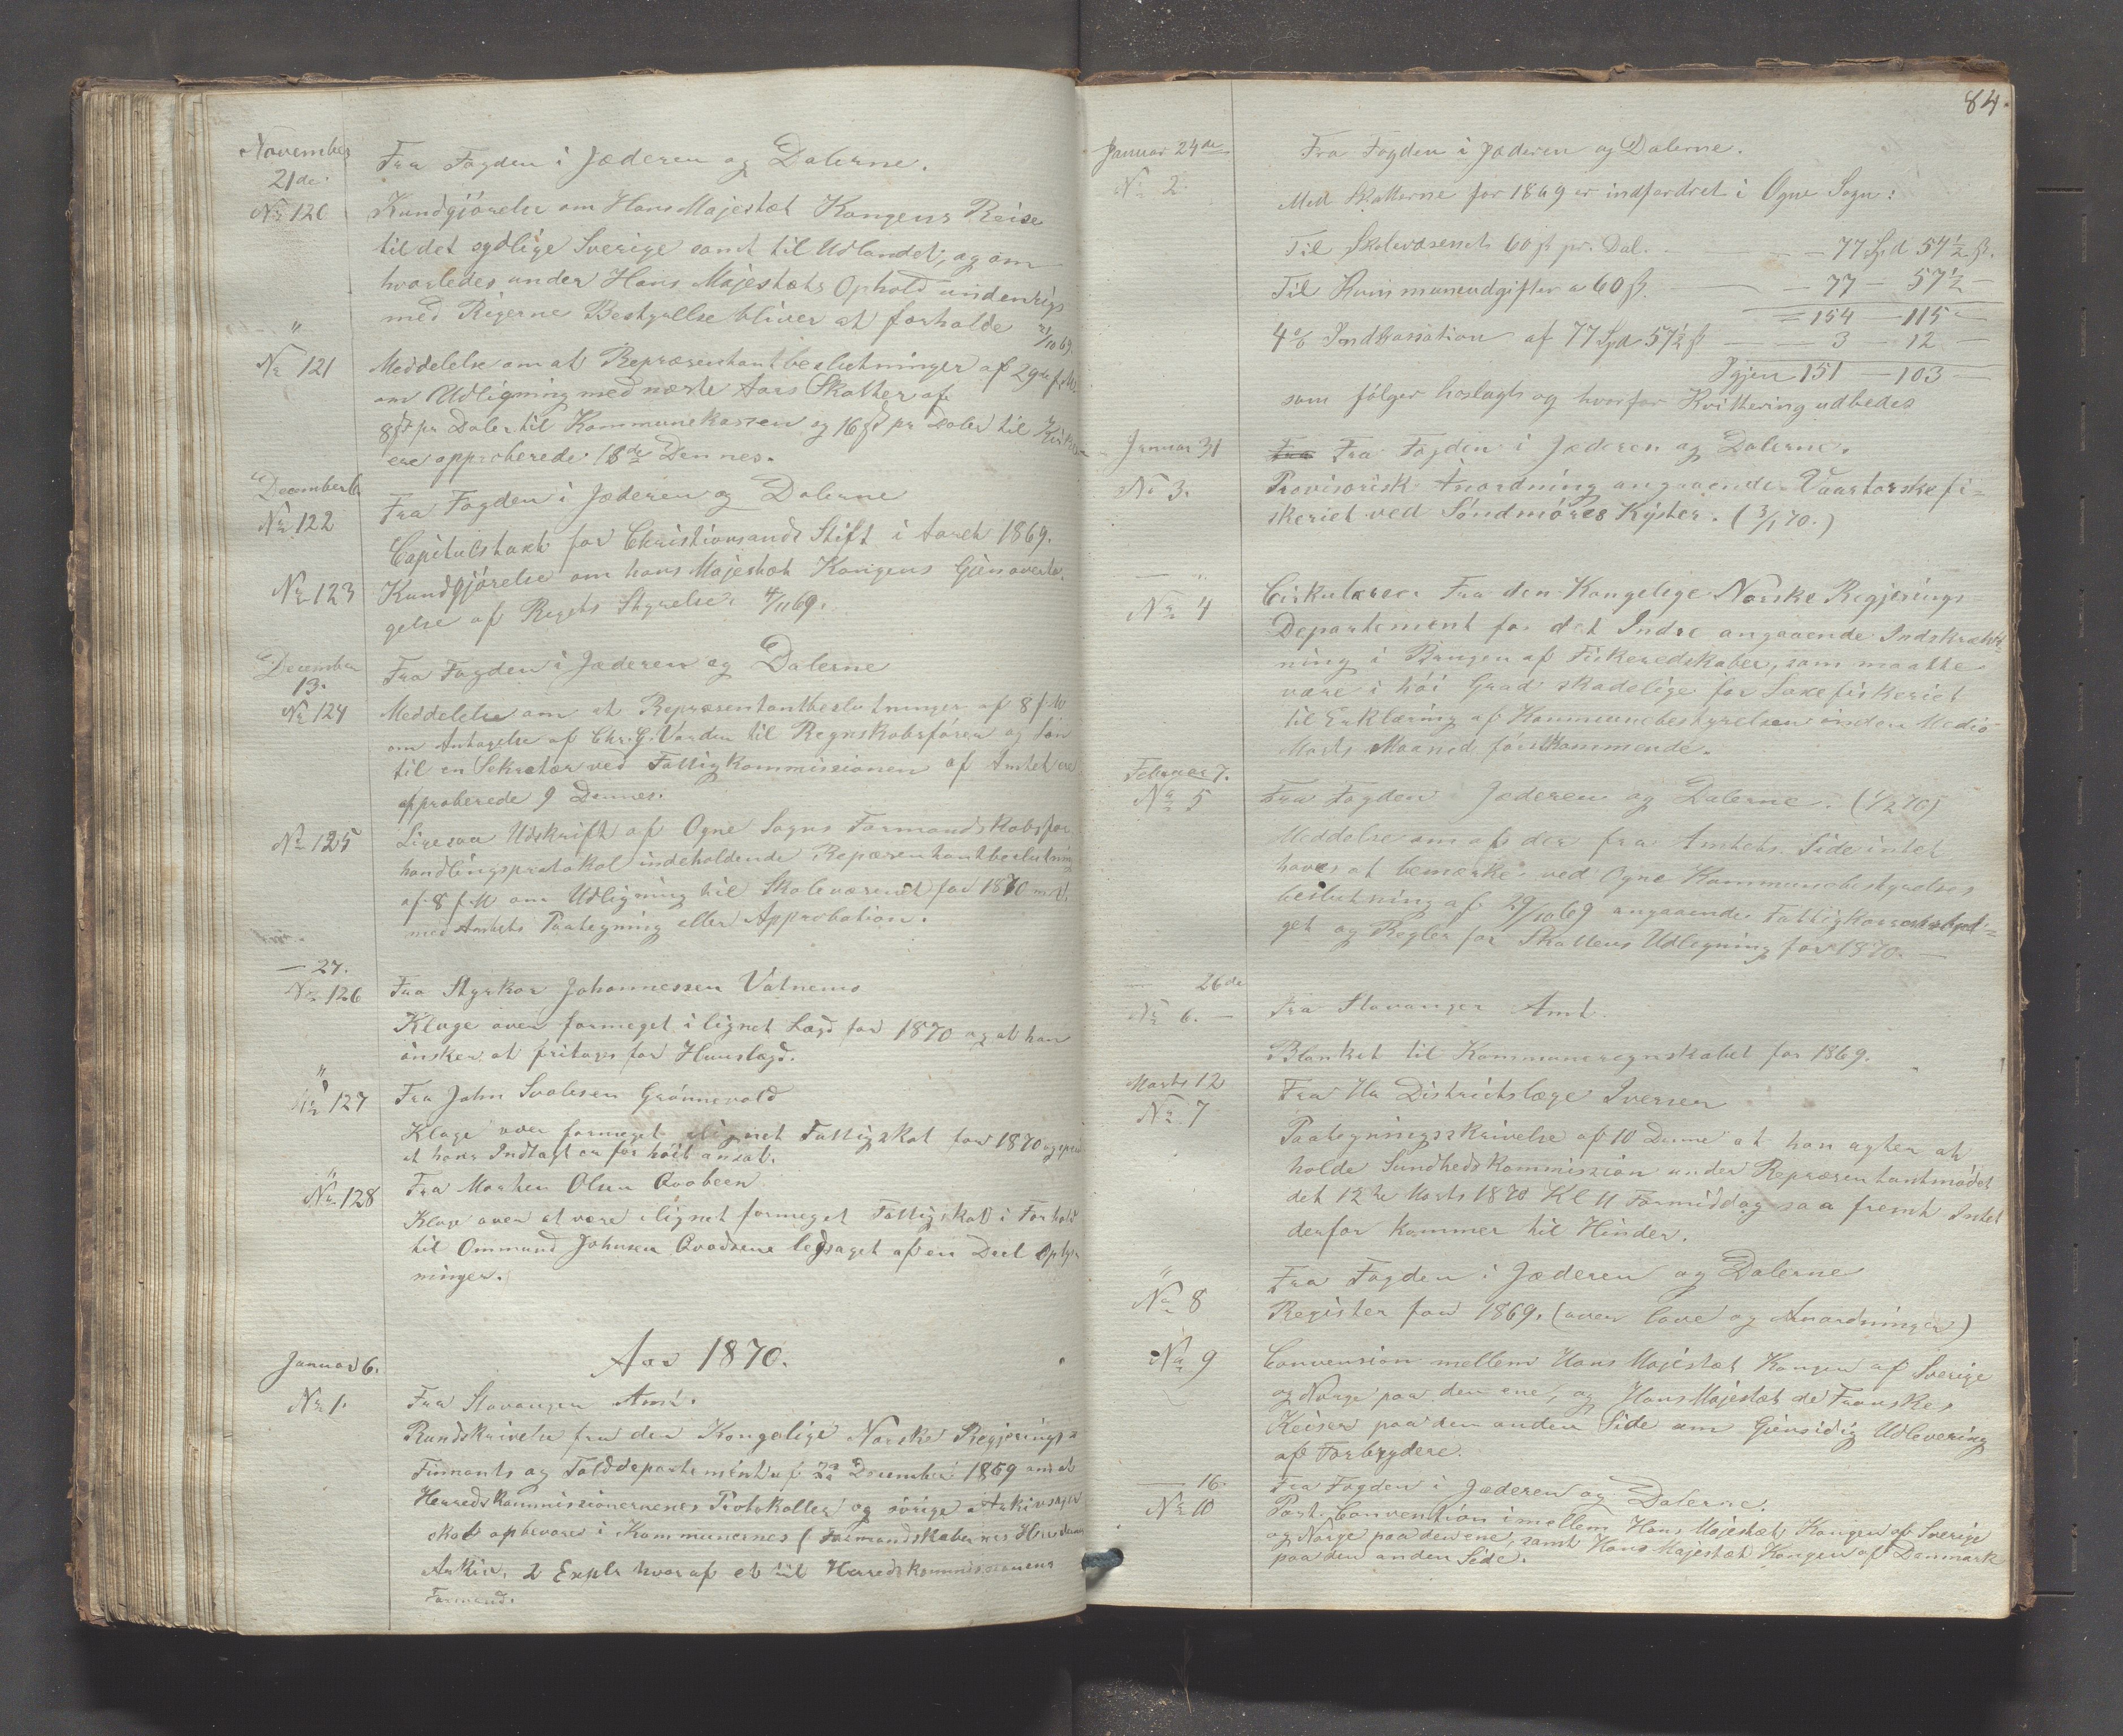 November
21de
No 120
Fra Fogden i Jæderen og Dalerne.
Kundgjörelse om Hans Majestæt Kongens Reise
til det sydlige Sverige samt til Udlandet, og om
hvorledes under Hans Majestæts Ophold udenrigs
med Rigerne Bestyrelse bliver at forholde 21/10 69.
"
No 121
Meddelelse om at Repræsentantbeslutninger af 29de f. M.
om Udligning med næste Aars Skatter af
8 ß pr Daler til Kommunekassen og 16 ß pr Daler til
ere approberede 18de Dennes.
December 6
No 122
Fra Fogden i Jæderen og Dalerne
Capitelstaxt for Christiansands Stift i Aaret 1869.
No 123
Kundgjörelse om hans Majestæt Kongens Gjenoverta-
gelse af Rigets Styrelse. 4/11 69.
December
13.
No 124
Fra Fogden i Jæderen og Dalerne
Meddelelse om at Repræsentantbeslutninger af 8 f. M
om Antagelse af Chr. G. Varden til Regnskabsförer og Lön
til en Sekretær ved Fattigkommissionen af Amtet ere
approberede 9 Dennes.
No 125
Ligesaa Udskrift af Ogne Sogns Formandskabsfor-
handlingsprotokol indeholdende Repræsentantbeslutning
af 8 f. M om Udligning til Skolevæsenet for 1870 m. v.
med Amtets Paategning eller Approbation.
— 27.
No 126
Fra Styrkor Johannessen Vatnemo
Klage over formeget ilignet Lægd for 1870 og at han
önsker at fritages for Huuslagd.
"
No 127
Fra John Svalesen Grönnevold
Klage over formeget ilignet Fattigskat for 1870
at hans Indtægt er for höit ansat.
"
No 128
Fra Morten Olsen Qvabeen
Klage over at være ilignet formeget Fattigskat i Forhold
til Ommund Johnsen ledsaget af en Deel Oplys-
ninger.
Aar 1870.
Januar 6.
No 1.
Fra Stavanger Amt.
Rundskrivelse fra den Kongelige Norske Regjerings
Finants og Tolddepartement af December 1869 om at
Herredskommissionernes Protokoller og övrige Arkivsager
skal opbevares i Kommunernes (Formandskabernes
Arkiv. 2 Expls hvoraf et til Herredskommissionens
Formand.
84.
Januar 24de
No 2.
Fra Fogden i Jæderen og Dalerne.
Med Skatterne for 1869 er indfordret i Ogne Sogn:
Til Skolevæsenet 60 ß pr. Dal. — — — 77 Spd 57½ ß.
Til Kommuneudgifter a 60 ß. — — 77 — 57½ —
= 154 — 115 —
4% Indkassation af 77 Spd 57½ ß — — 3 — 12 —
Igjen 151 — 103 —
som fölger hoslagt og hvorfor Kvittering udbedes
Januar 31
No 3.
Fra Fra Fogden i Jæderen og Dalerne.
Provisorisk Anordning angaaende Vaartorskefi=
skeriet ved Söndmöres Kyster. (3/1 70.)
— "
No 4
Cirkulære. Fra den Kongelige Norske Regjerings
Departement for det Indre angaaende Indskrænk=
ning i Brugen af Fiskeredskaber, som maatte
være i höi Grad skadelige for Laxefiskeriet
til Erklæring af Kommunebestyrelsen inden Medio
Marts Maaned förstkommende.
Februar 7.
No 5
Fra Fogden Jæderen og Dalerne. (1/2 70)
Meddelse om at der fra Amtets Side intet
haves at bemærke ved Ogne Kommunebestyrelses
beslutning af 29/10 69 angaaende
get og Regler for Skattens Udligning for 1870. —
26de
No 6. —
Fra Stavanger Amt.
Blanket til Kommuneregnskabet for 1869.
Marts 12
No 7
Fra Hr Distriktslæge Iversen
Paategningsskrivelse af 10 Denne at han agter at
holde Sundhedskommission under Repræsentantmödet
det 12te Marts 1870 Kl 11 Formiddag saa fremt Intet
derfor kommer til Hinder.
"
No 8
Fra Fogden i Jæderen og Dalerne
Register for 1869. (over love og Anordninger)
No 9
Convension mellem Hans Majestæt Kongen af Sverige
og Norge paa den ene, og Hans Majestæt de Franskes
Keiser paa den anden Side om Gjensidig Udlevering
af Forbrydere
— 16.
No 10
Fra Fogden i Jæderen og Dalerne.
Post. Convention imellem Hans Majestæt Kongen af Sverige
og Norge paa den ene, samt Hans Majestæt Kongen af Danmark
paa den anden Side.